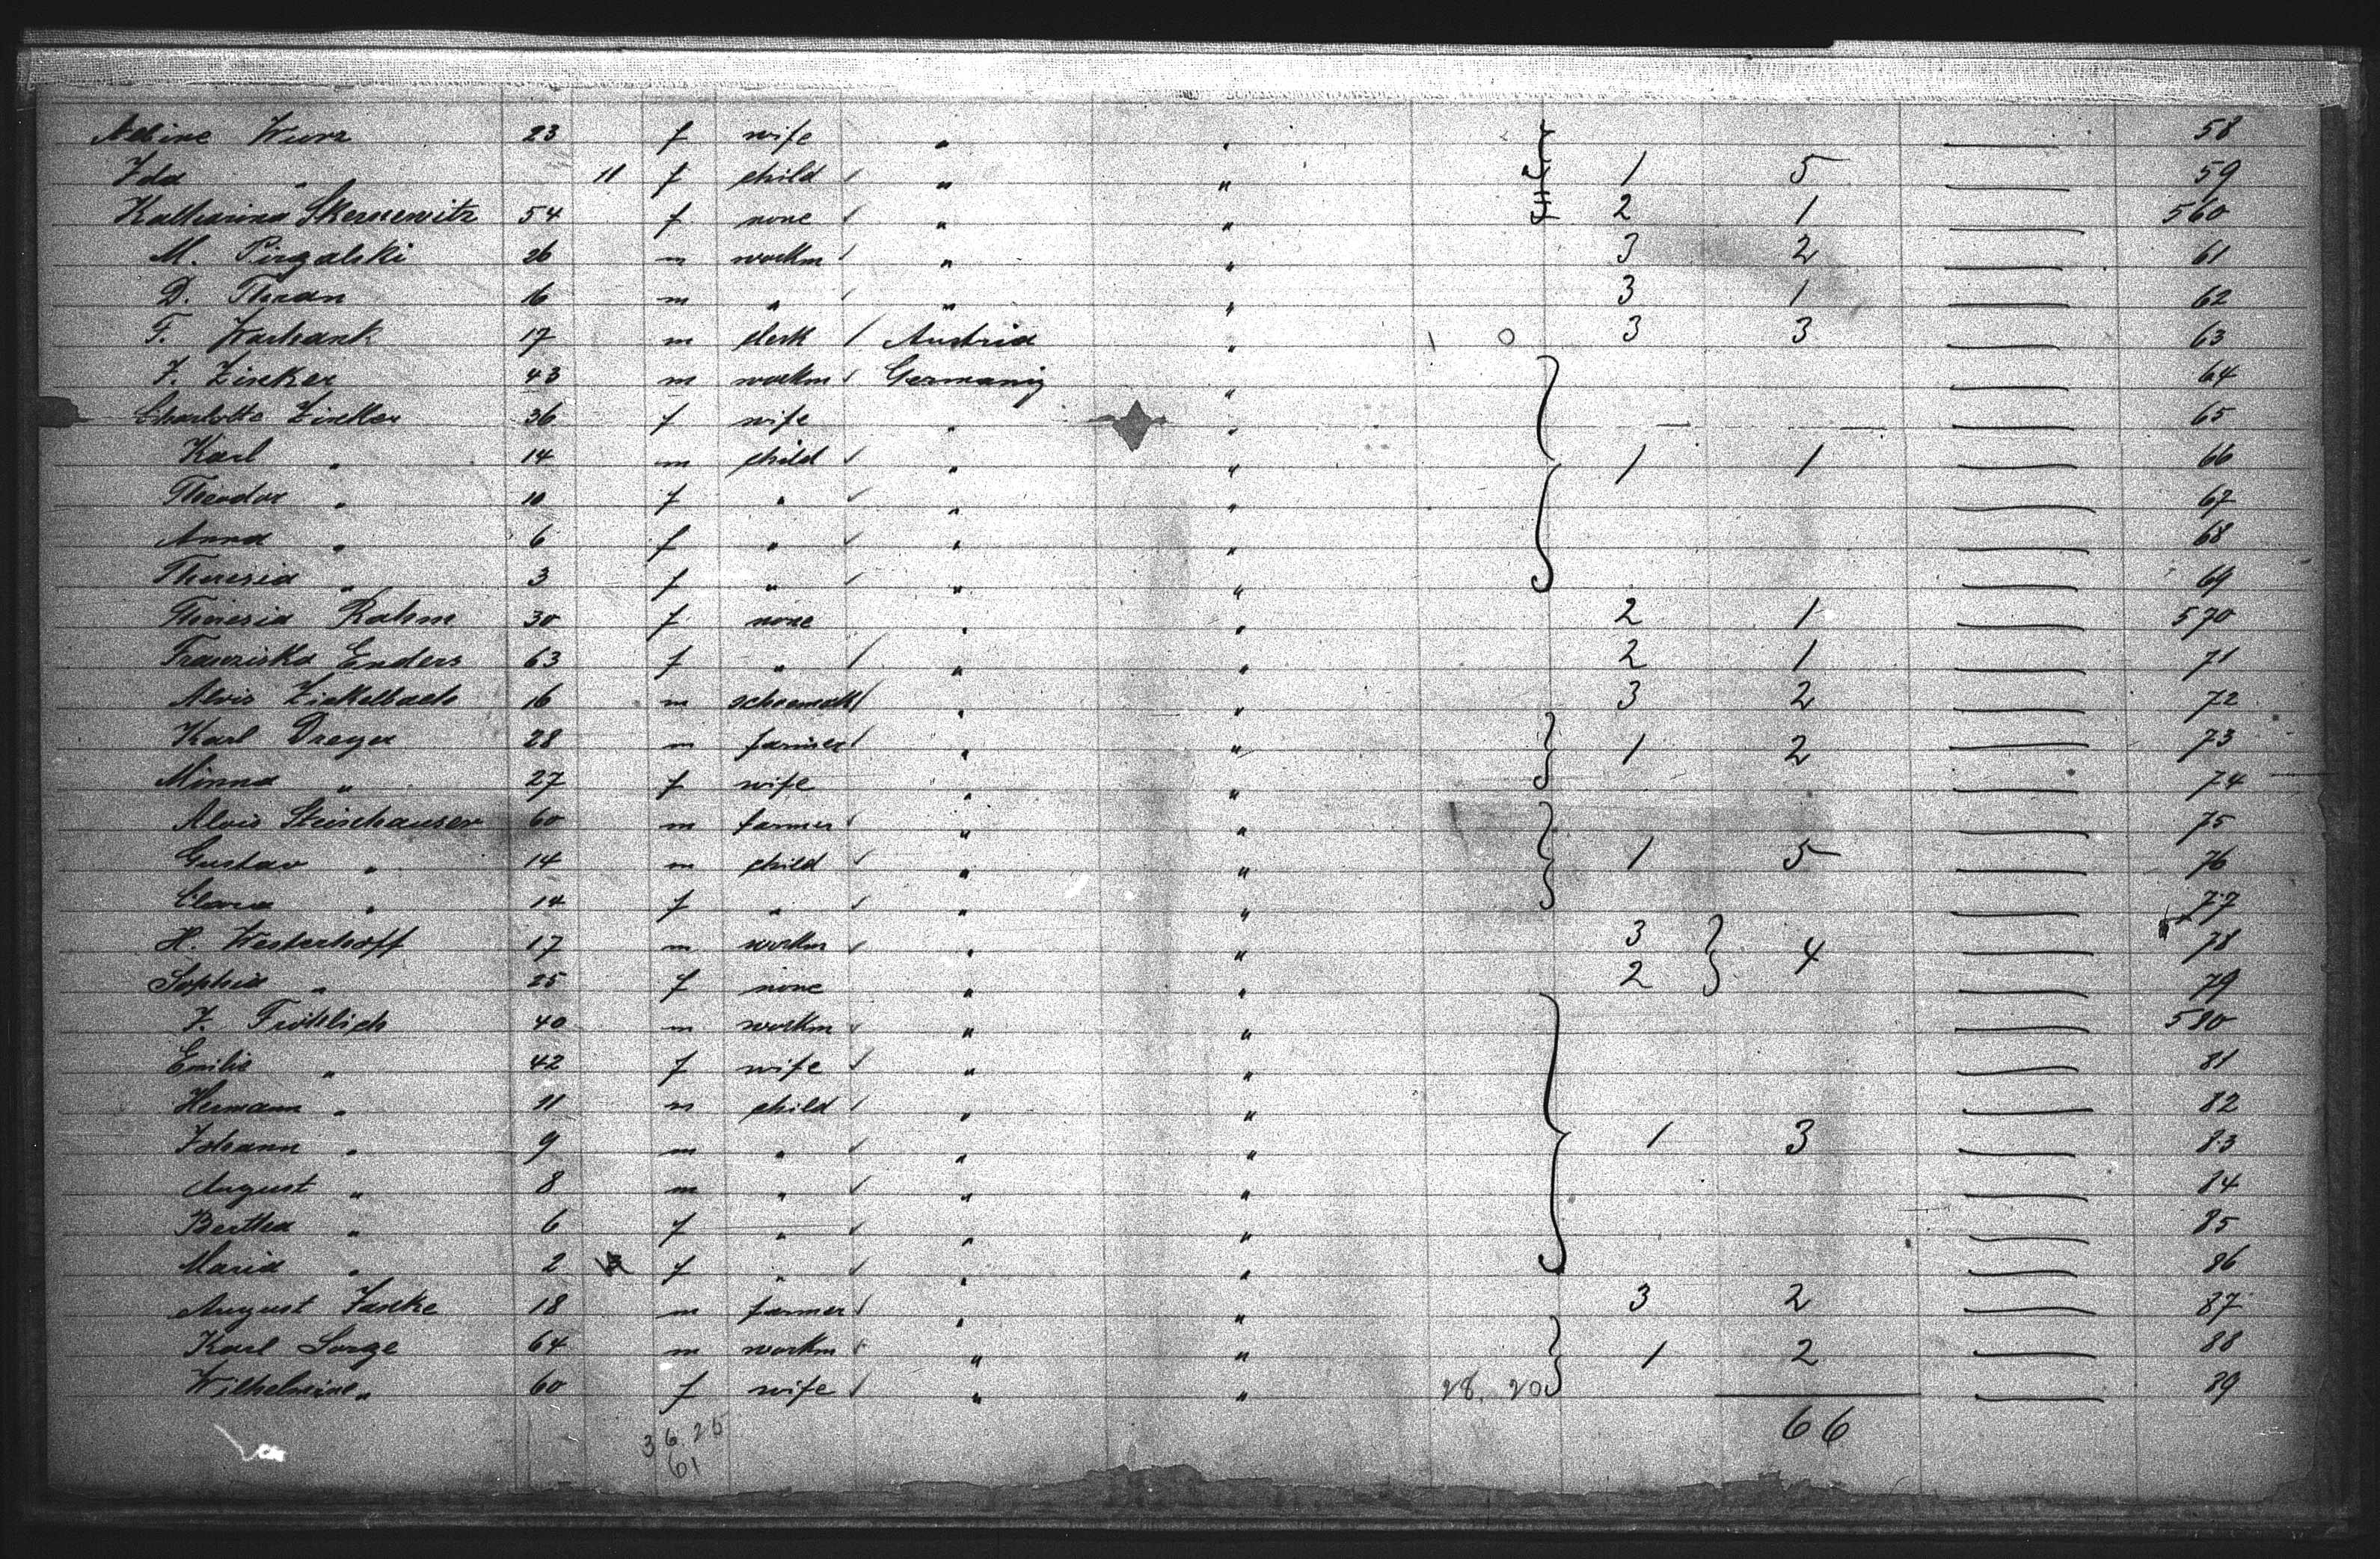 Albine Wurz 23 f wife " " 58
Ida " 11 f child " " 1 5 59
Katharina Skernewitz 54 f none " " 2 1 560
M. Pirgalski 26 m workm " " 3 2 61
D. Thran 16 m " " " 3 1 62
F. Warhank 17 m clerk Austria " 1 0 3 3 63
J. Zinker 43 m workm Germany " 64
Charlotte Zinker 36 f wife " " 65
Karl " 14 m child " " 1 1 66
Theodor " 10 f " " " 67
Anna " 6 f " " " 68
Theresia " 3 f " " " 69
Theresia Rahm 30 f none " " 2 1 570
Franziska Enders 63 f " " " 2 1 71
Alois Zinkelbach 16 m schoemak " " 3 2 72
Karl Dreyer 28 m farmer " " 1 2 73
Minna " 27 f wife " " 74
Alois Steinhauser 60 m farmer " " 75
Gustav " 14 m child " " 1 5 76
Clara " 14 f " " " 77
H. Westerhoff 17 m workm " " 3 4 78
Sophia " 25 f none " " 2 79
J. Fröhlich 40 m workm " " 580
Emilie " 42 f wife " " 81
Hermann " 11 m child " " 82
Johann " 9 m " " " 1 3 83
August " 8 m " " " 84
Bertha " 6 f " " " 85
Maria " 2 f " " " 86
August Jaseke 18 m farmer " " 3 2 87
Karl Sorge 64 m workm " " 1 2 88
Wilhelmine " 60 f wife " " 28. 20 89
36 25 66
61